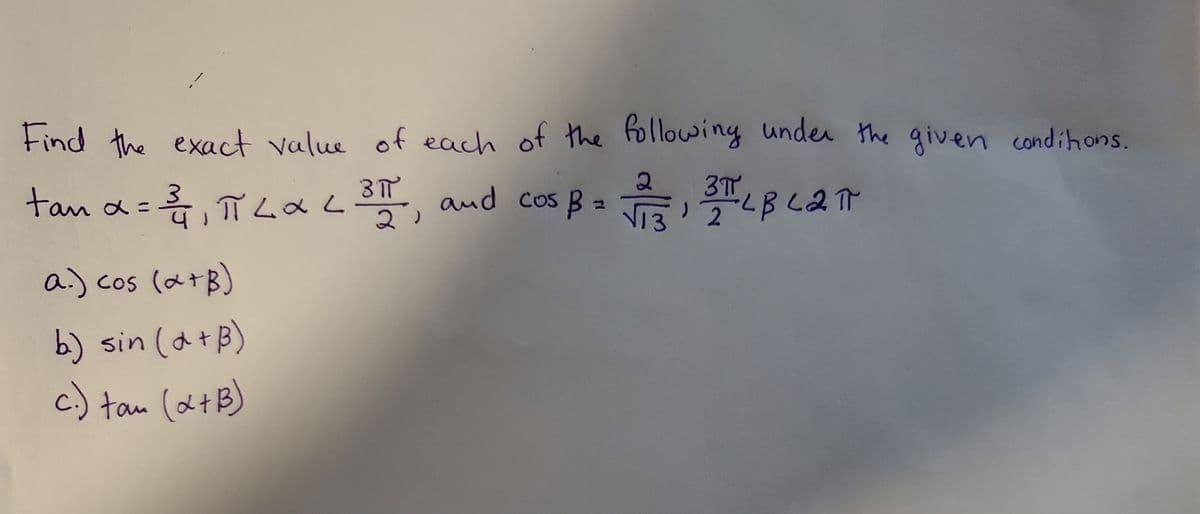 Find the exact value of each of the following under the given conditions.
tan α = 3/4, π < α < 3π/2, and cos β = 2/√13, 3π/2 < β < 2π
a.) cos (α+β)
b.) sin (α+β)
c.) tan (α+β)